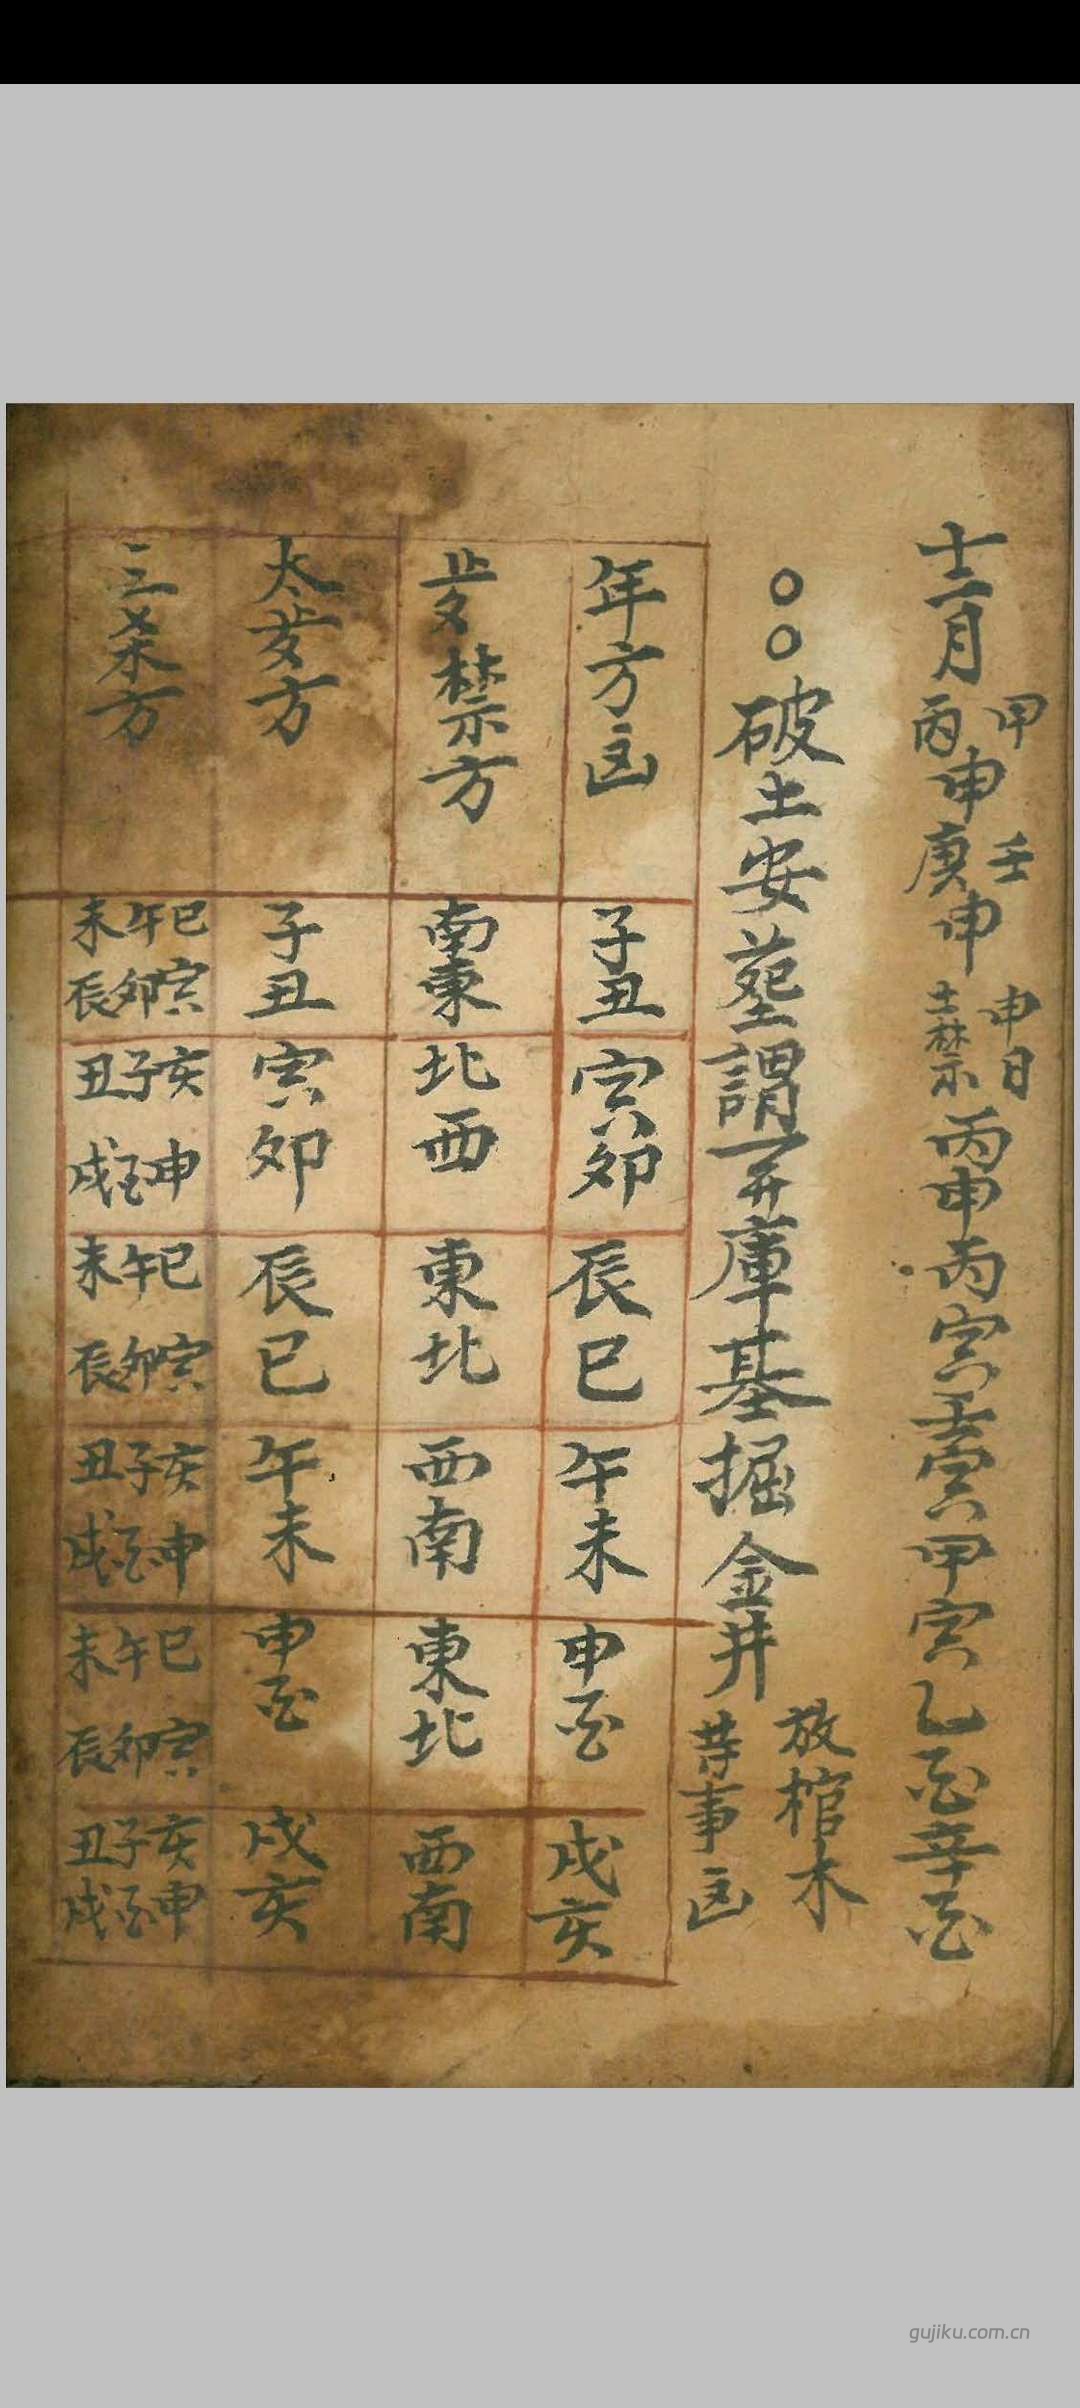 十二月 甲丙申 壬庚申 申日土禁 丙申 丙寅 壬寅 甲寅 乙酉 辛酉
○○破土安塟謂一开庫基掘金井 放棺木
等事凶
年方凶 子丑 寅卯 辰巳 午未 申酉 戌亥
禁方 南東 北西 東北 西南 東北 西南
太歲方 子丑 寅卯 辰巳 午未 申酉 戌亥
三杀方 巳午未寅卯辰 亥子丑申酉戌 巳午未寅卯辰 亥子丑申酉戌 巳午未寅卯辰 亥子丑申酉戌
gujiku.com.cn